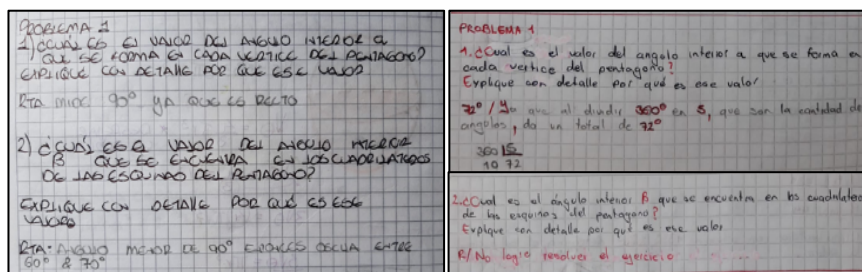 PROBLEMA 1
1) ¿CUAL ES EL VALOR DEL ANGULO INTERIOR α
QUE SE FORMA EN CADA VERTICE DEL PENTAGONO?
EXPLIQUE CON DETALLE POR QUE ESE VALOR
RTA MIDE 90° YA QUE ES RECTO
2) ¿CUAL ES EL VALOR DEL ANGULO INTERIOR
β QUE SE ENCUENTRA EN LOS CUADRILATEROS
DE LAS ESQUINAS DEL PENTAGONO?
EXPLIQUE CON DETALLE POR QUÉ ES ESE
VALOR
RTA: ANGULO MENOR DE 90° OSCILA ENTRE
60° & 70°
PROBLEMA 1
1. ¿Cual es el valor del angolo interios a que se forma en
cada vertice del pentagono?
Explique con detalle por qué es ese valor
72° / Ya que al dividir 360° en 5, que son la cantidad de
angulos, da un total de 72°
360 5
10 72
2. ¿Cual es el ángulo interior β que se encuentra en los cuadrilateros
de las esquinas del pentagono?
Explique con detalle por qué es ese valor
R/ No logré resolver el ejercicio